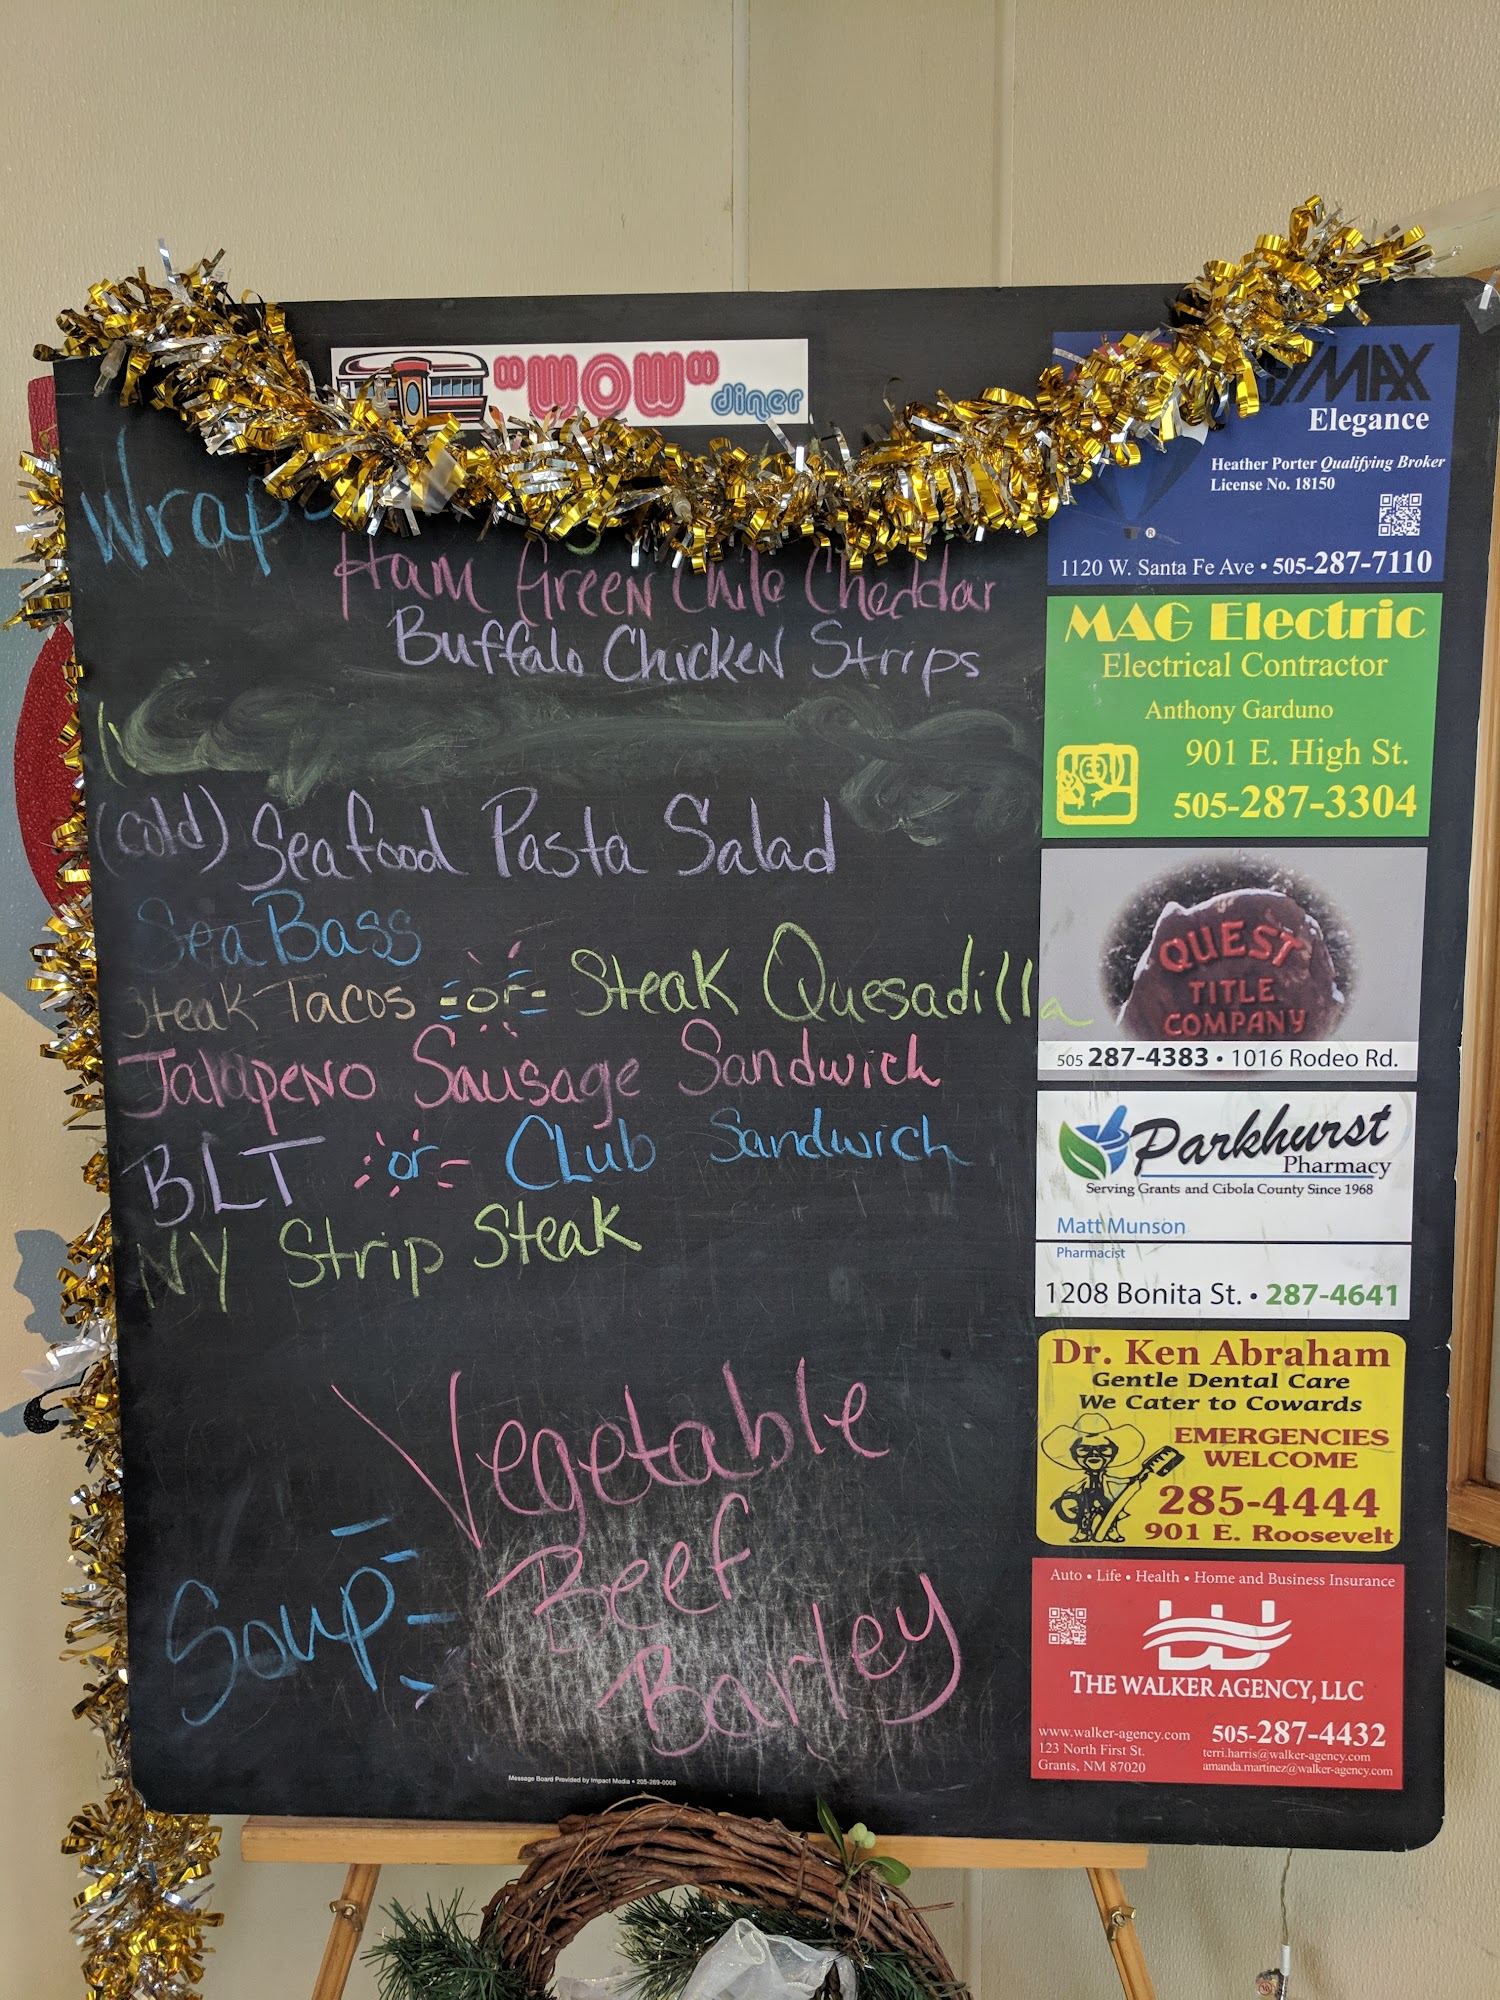 "WOW" diner
Wraps
Ham Green Chile Cheddar
Buffalo Chicken Strips
(Cold) Seafood Pasta Salad
Sea Bass
Steak Tacos -or- Steak Quesadilla
Jalapeno Sausage Sandwich
BLT or Club Sandwich
NY Strip Steak
Soup
Vegetable
Beef
Barley
Message Board Provided by Impact Media • 205-269-0008
/MAX
Elegance
Heather Porter Qualifying Broker
License No. 18150
®
1120 W. Santa Fe Ave • 505-287-7110
MAG Electric
Electrical Contractor
Anthony Garduno
901 E. High St.
505-287-3304
QUEST
TITLE
COMPANY
505 287-4383 • 1016 Rodeo Rd.
Parkhurst
Pharmacy
Serving Grants and Cibola County Since 1968
Matt Munson
Pharmacist
1208 Bonita St. • 287-4641
Dr. Ken Abraham
Gentle Dental Care
We Cater to Cowards
EMERGENCIES
WELCOME
285-4444
901 E. Roosevelt
Auto • Life • Health • Home and Business Insurance
THE WALKER AGENCY, LLC
www.walker-agency.com 505-287-4432
123 North First St. terri.harris@walker-agency.com
Grants, NM 87020 amanda.martinez@walker-agency.com